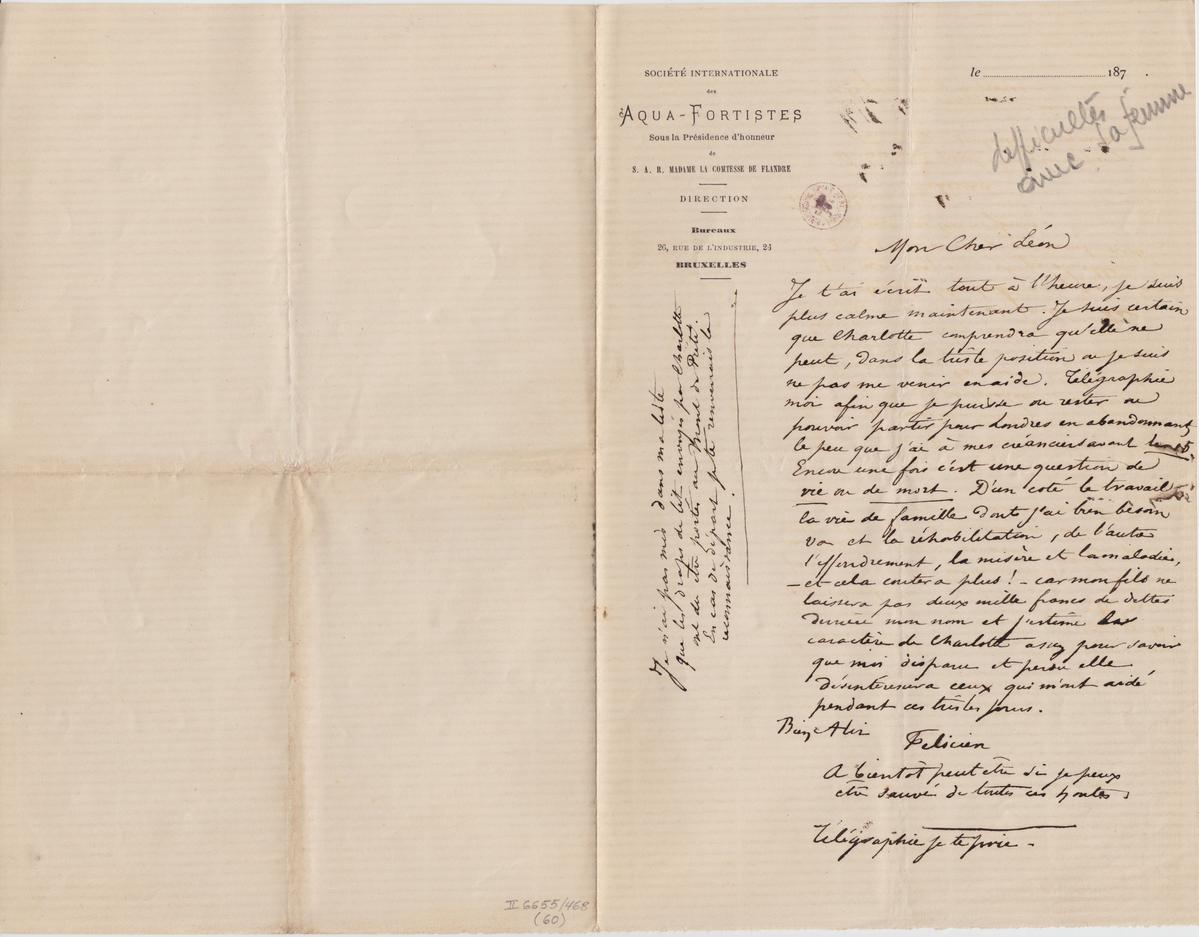 SOCIÉTÉ INTERNATIONALE
des
AQUA-FORTISTES
Sous la Présidence d'honneur
de
S. A. R. MADAME LA COMTESSE DE FLANDRE
DIRECTION
Bureaux
26, RUE DE L'INDUSTRIE, 26
BRUXELLES
le 187 .
difficultés
avec sa femme
Mon Cher Léon
Je t'ai écrit tout à l'heure, je suis
plus calme maintenant. Je suis certain
que Charlotte comprendra qu'elle ne
peut, dans la triste position ou je suis
ne pas me venir en aide. Télégraphie
moi afin que je puisse ou rester ou
pouvoir partir pour Londres en abandonnant
le peu que j'ai à mes créanciers avant le 15.
Encore une fois c'est une question de
vie ou de mort. D'un coté le travail
la vie de famille dont j'ai bien besoin
va et la réhabilitation, de l'autre
l'effondrement, la misère et la maladie,
— et cela coutera plus! — car mon fils ne
laissera pas deux mille francs de dettes
derrière mon nom et j'estime le
caractère de Charlotte assez pour savoir
que moi disparu et perdu elle
désintéressera ceux qui m'ont aidé
pendant ces tristes jours.
Bien à toi
Felicien
A bientôt peut être si je peux
être sauvé de toutes ces hontes
Télégraphie je te prie -
Je n'ai pas mis dans ma liste
que les draps de lit envoyés par Charlotte
ont du être portés au Mont de Piété.
En cas de départ je te renverrais la
reconnaissance.
II 6655/468
(60)